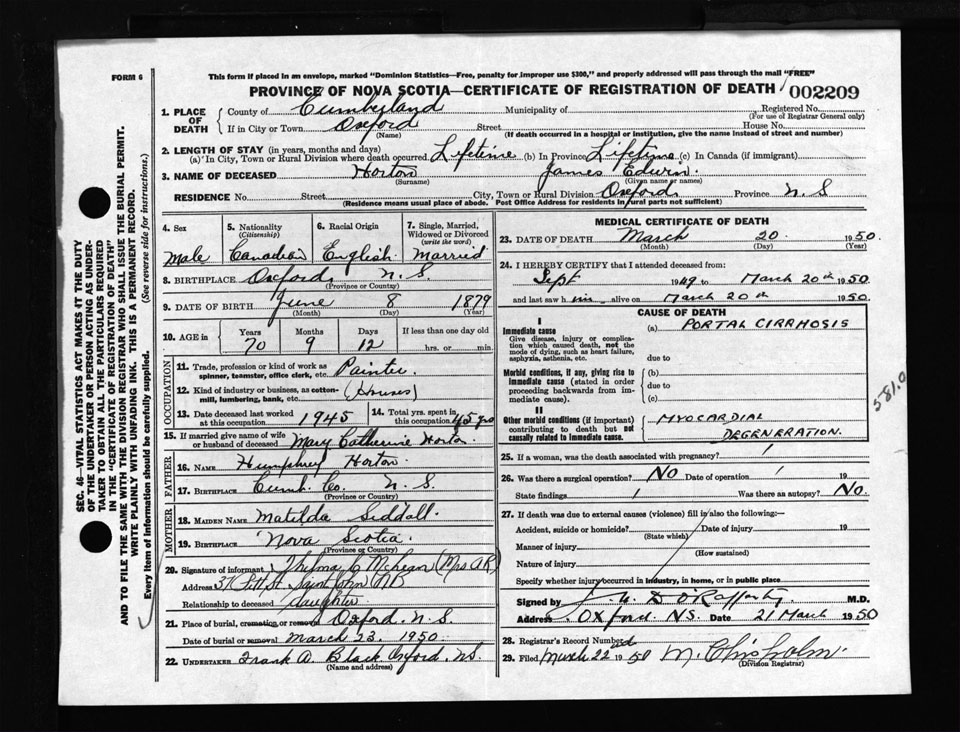 FORM 6
This form if placed in an envelope, marked "Dominion Statistics—Free, penalty for improper use $300," and properly addressed will pass through the mail "FREE"
PROVINCE OF NOVA SCOTIA—CERTIFICATE OF REGISTRATION OF DEATH 002209
1. PLACE OF DEATH County of Cumberland Municipality of Registered No. (For use of Registrar General only)
If in City or Town Oxford (Name) Street House No.
(If death occurred in a hospital or institution, give the name instead of street and number)
2. LENGTH OF STAY (in years, months and days)
(a) In City, Town or Rural Division where death occurred Lifetime (b) In Province Lifetime (c) In Canada (if immigrant)
3. NAME OF DECEASED Horton (Surname) James Edwin. (Given name or names)
RESIDENCE No. Street City, Town or Rural Division Oxford Province N.S
(Residence means usual place of abode. Post Office Address for residents in rural parts not sufficient)
4. Sex Male
5. Nationality (Citizenship) Canadian
6. Racial Origin English.
7. Single, Married, Widowed or Divorced (write the word) Married
8. BIRTHPLACE Oxford N.S (Province or Country)
9. DATE OF BIRTH June 8 1879 (Month) (Day) (Year)
10. AGE in Years 70 Months 9 Days 12 If less than one day old hrs. or min.
OCCUPATION
11. Trade, profession or kind of work as spinner, teamster, office clerk, etc. Painter
12. Kind of industry or business, as cotton-mill, lumbering, bank, etc. (Houses)
13. Date deceased last worked at this occupation 1945
14. Total yrs. spent in this occupation 45 yrs
15. If married give name of wife or husband of deceased Mary Catherine Horton.
FATHER
16. NAME Humphrey Horton.
17. BIRTHPLACE Cumb. Co. N.S. (Province or Country)
MOTHER
18. MAIDEN NAME Matilda Siddall.
19. BIRTHPLACE Nova Scotia. (Province or Country)
20. Signature of informant Thelma C. (Mrs A.R.)
Address 37 Pitt St. Saint John N.B
Relationship to deceased daughter
21. Place of burial, cremation or removal Oxford. N.S.
Date of burial or removal March 23. 1950.
22. UNDERTAKER Frank A. Black Oxford. N.S. (Name and address)
MEDICAL CERTIFICATE OF DEATH
23. DATE OF DEATH March 20. 1950. (Month) (Day) (Year)
24. I HEREBY CERTIFY that I attended deceased from:
Sept 1949 to March 20th 1950
and last saw h im alive on March 20th 1950.
CAUSE OF DEATH
I
Immediate cause
Give disease, injury or complication which caused death, not the mode of dying, such as heart failure, asphyxia, asthenia, etc.
(a) PORTAL CIRRHOSIS
due to
Morbid conditions, if any, giving rise to immediate cause (stated in order proceeding backwards from immediate cause).
(b)
due to
(c)
581.0
II
Other morbid conditions (if important) contributing to death but not causally related to immediate cause.
MYOCARDIAL
DEGENERATION.
25. If a woman, was the death associated with pregnancy?
26. Was there a surgical operation? No Date of operation 19
State findings Was there an autopsy? No.
27. If death was due to external causes (violence) fill in also the following:—
Accident, suicide or homicide? (State which) Date of injury 19
Manner of injury (How sustained)
Nature of injury
Specify whether injury occurred in industry, in home, or in public place
Signed by D O'Rafferty M.D.
Address OXFORD NS. Date 21 March 1950
28. Registrar's Record Number
29. Filed March 22nd 1950 M. Chisholm. (Division Registrar)
SEC. 46—VITAL STATISTICS ACT MAKES IT THE DUTY
OF THE UNDERTAKER OR PERSON ACTING AS UNDER-
TAKER TO OBTAIN ALL THE PARTICULARS REQUIRED
IN THE "CERTIFICATE OF REGISTRATION OF DEATH"
AND TO FILE THE SAME WITH THE DIVISION REGISTRAR WHO SHALL ISSUE THE BURIAL PERMIT.
WRITE PLAINLY WITH UNFADING INK. THIS IS A PERMANENT RECORD.
Every item of information should be carefully supplied. (See reverse side for instructions.)